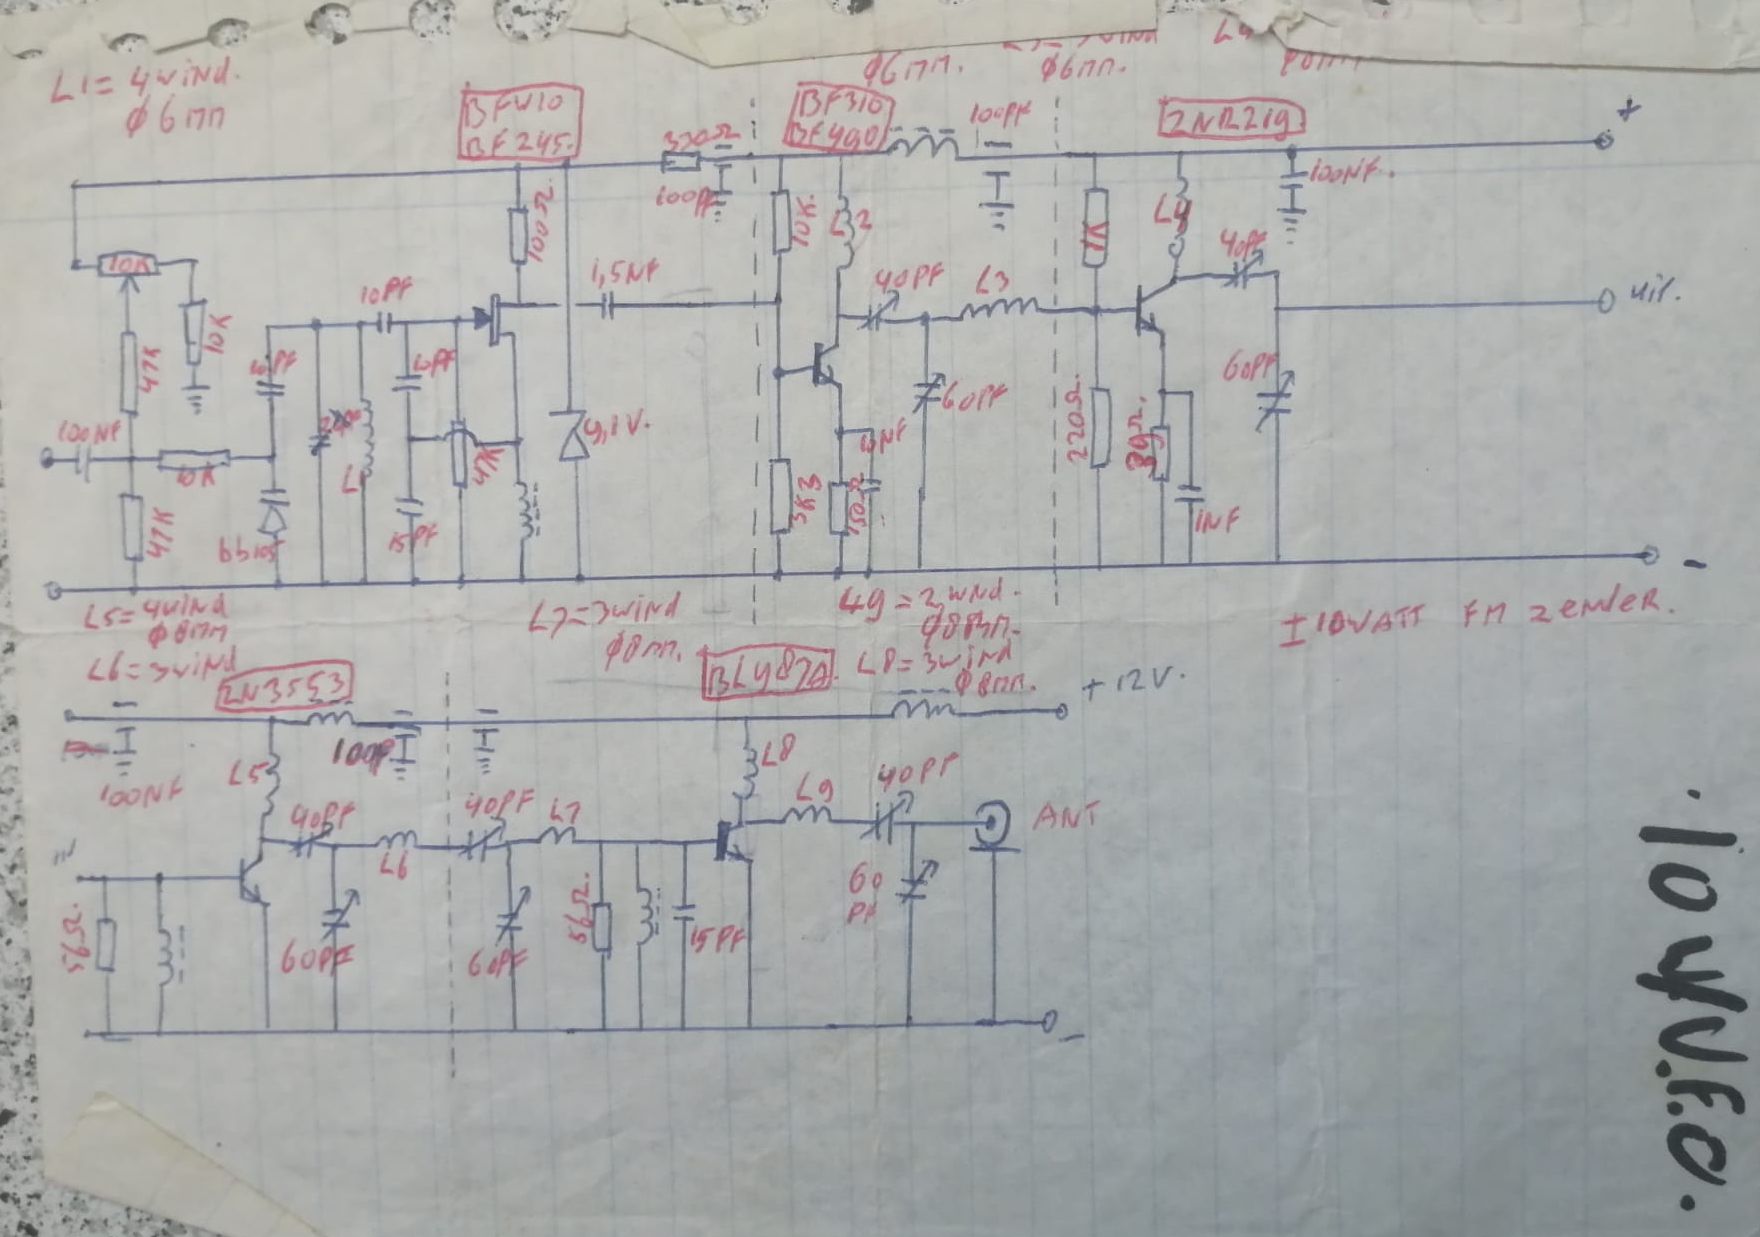 L1= 4wind.
φ6mm
BFW10
BF245.
BF310
BF490
φ6mm.
φ6mm.
L4
2N2219
+
330Ω
100PF
100PF
100NF.
10K
10K
47K
100NF
10K
47K
10PF
bb105
L
10PF
10PF
15PF
47K
100Ω.
1,5NF
9,1V.
10K.
L2
40PF
L3
3K3
150Ω
1NF
60PF
1K
220Ω.
L4
40PF
39Ω.
1NF
60PF
uit.
-
L5= 4wind
φ8mm
L6= 3wind
L7= 3wind
φ8mm.
L9 = 2wnd.
φ8mm.
L8= 3wind
φ8mm.
±10WATT FM zender.
2N3553
BLY87A
+ 12V.
100NF
100P
L5
40PF
L6
60PF
56Ω.
40PF
L7
60PF
56Ω.
15PF
L8
L9
40PF
60
PF
ANT
-
10W V.F.O.